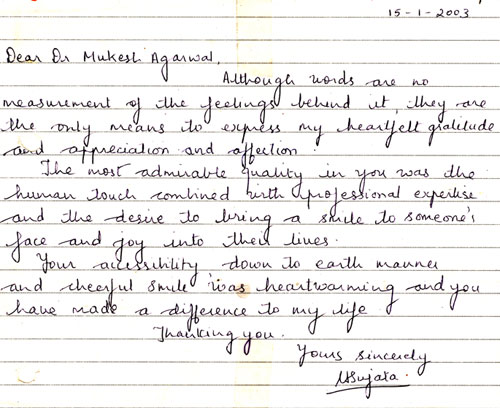 15-1-2003
Dear Dr Mukesh Agarwal,
Although words are no
measurement of the feelings behind it, they are
the only means to express my heartfelt gratitude
and appreciation and affection.
The most admirable quality in you was the
human touch combined with professional expertise
and the desire to bring a smile to someone's
face and joy into their lives.
Your accessibility down to earth manner
and cheerful smile was heartwarming and you
have made a difference to my life
Thanking you.
Yours sincerely